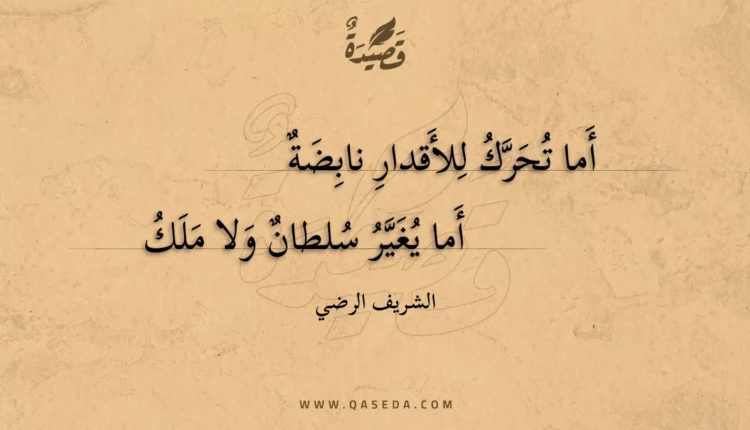 قَصِيدَةٌ
أَما تُحَرَّكُ لِلأَقدارِ نابِضَةٌ
أَما يُغَيَّرُ سُلطانٌ وَلا مَلَكُ
الشريف الرضي
WWW.QASEDA.COM